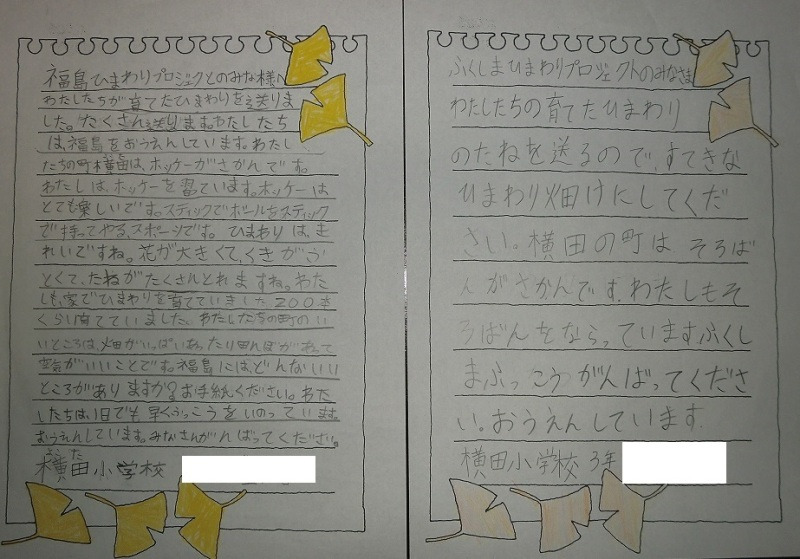 福島ひまわりプロジェクトのみな様へ
わたしたちが育てたひまわりを送りま
した。たくさん送ります。わたしたち
は、福島をおうえんしています。わたし
たちの町横田は、ホッケーがさかんです。
わたしは、ホッケーを習ています。ホッケーは
とても楽しいです。スティックでボールをスティック
で持ってやる、スポーツです。ひまわりは、き
れいですね。花が大きくて、くきがふ
とくて、たねがたくさんとれますね。わた
しも、家でひまわりを育てていました200本
くらい育ていました。わたしたちの町のい
いところは、畑がいっぱいあったり田んぼがあって
空気がいいことです。福島には、どんないい
ところがありますか?お手紙ください。わた
したちは、1日でも早くふっこうをいのっています。
おうえんしています。みなさんがんばってください。
横田小学校
ふくしまひまわりプロジェクトのみなさま
わたしたちの育てたひまわり
のたねを送るので、すてきな
ひまわり畑けにしてくだ
さい。横田の町はそろば
んがさかんです。わたしもそ
ろばんをならっていますふくし
まふっこうがんばってくださ
い。おうえんしています。
横田小学校3年